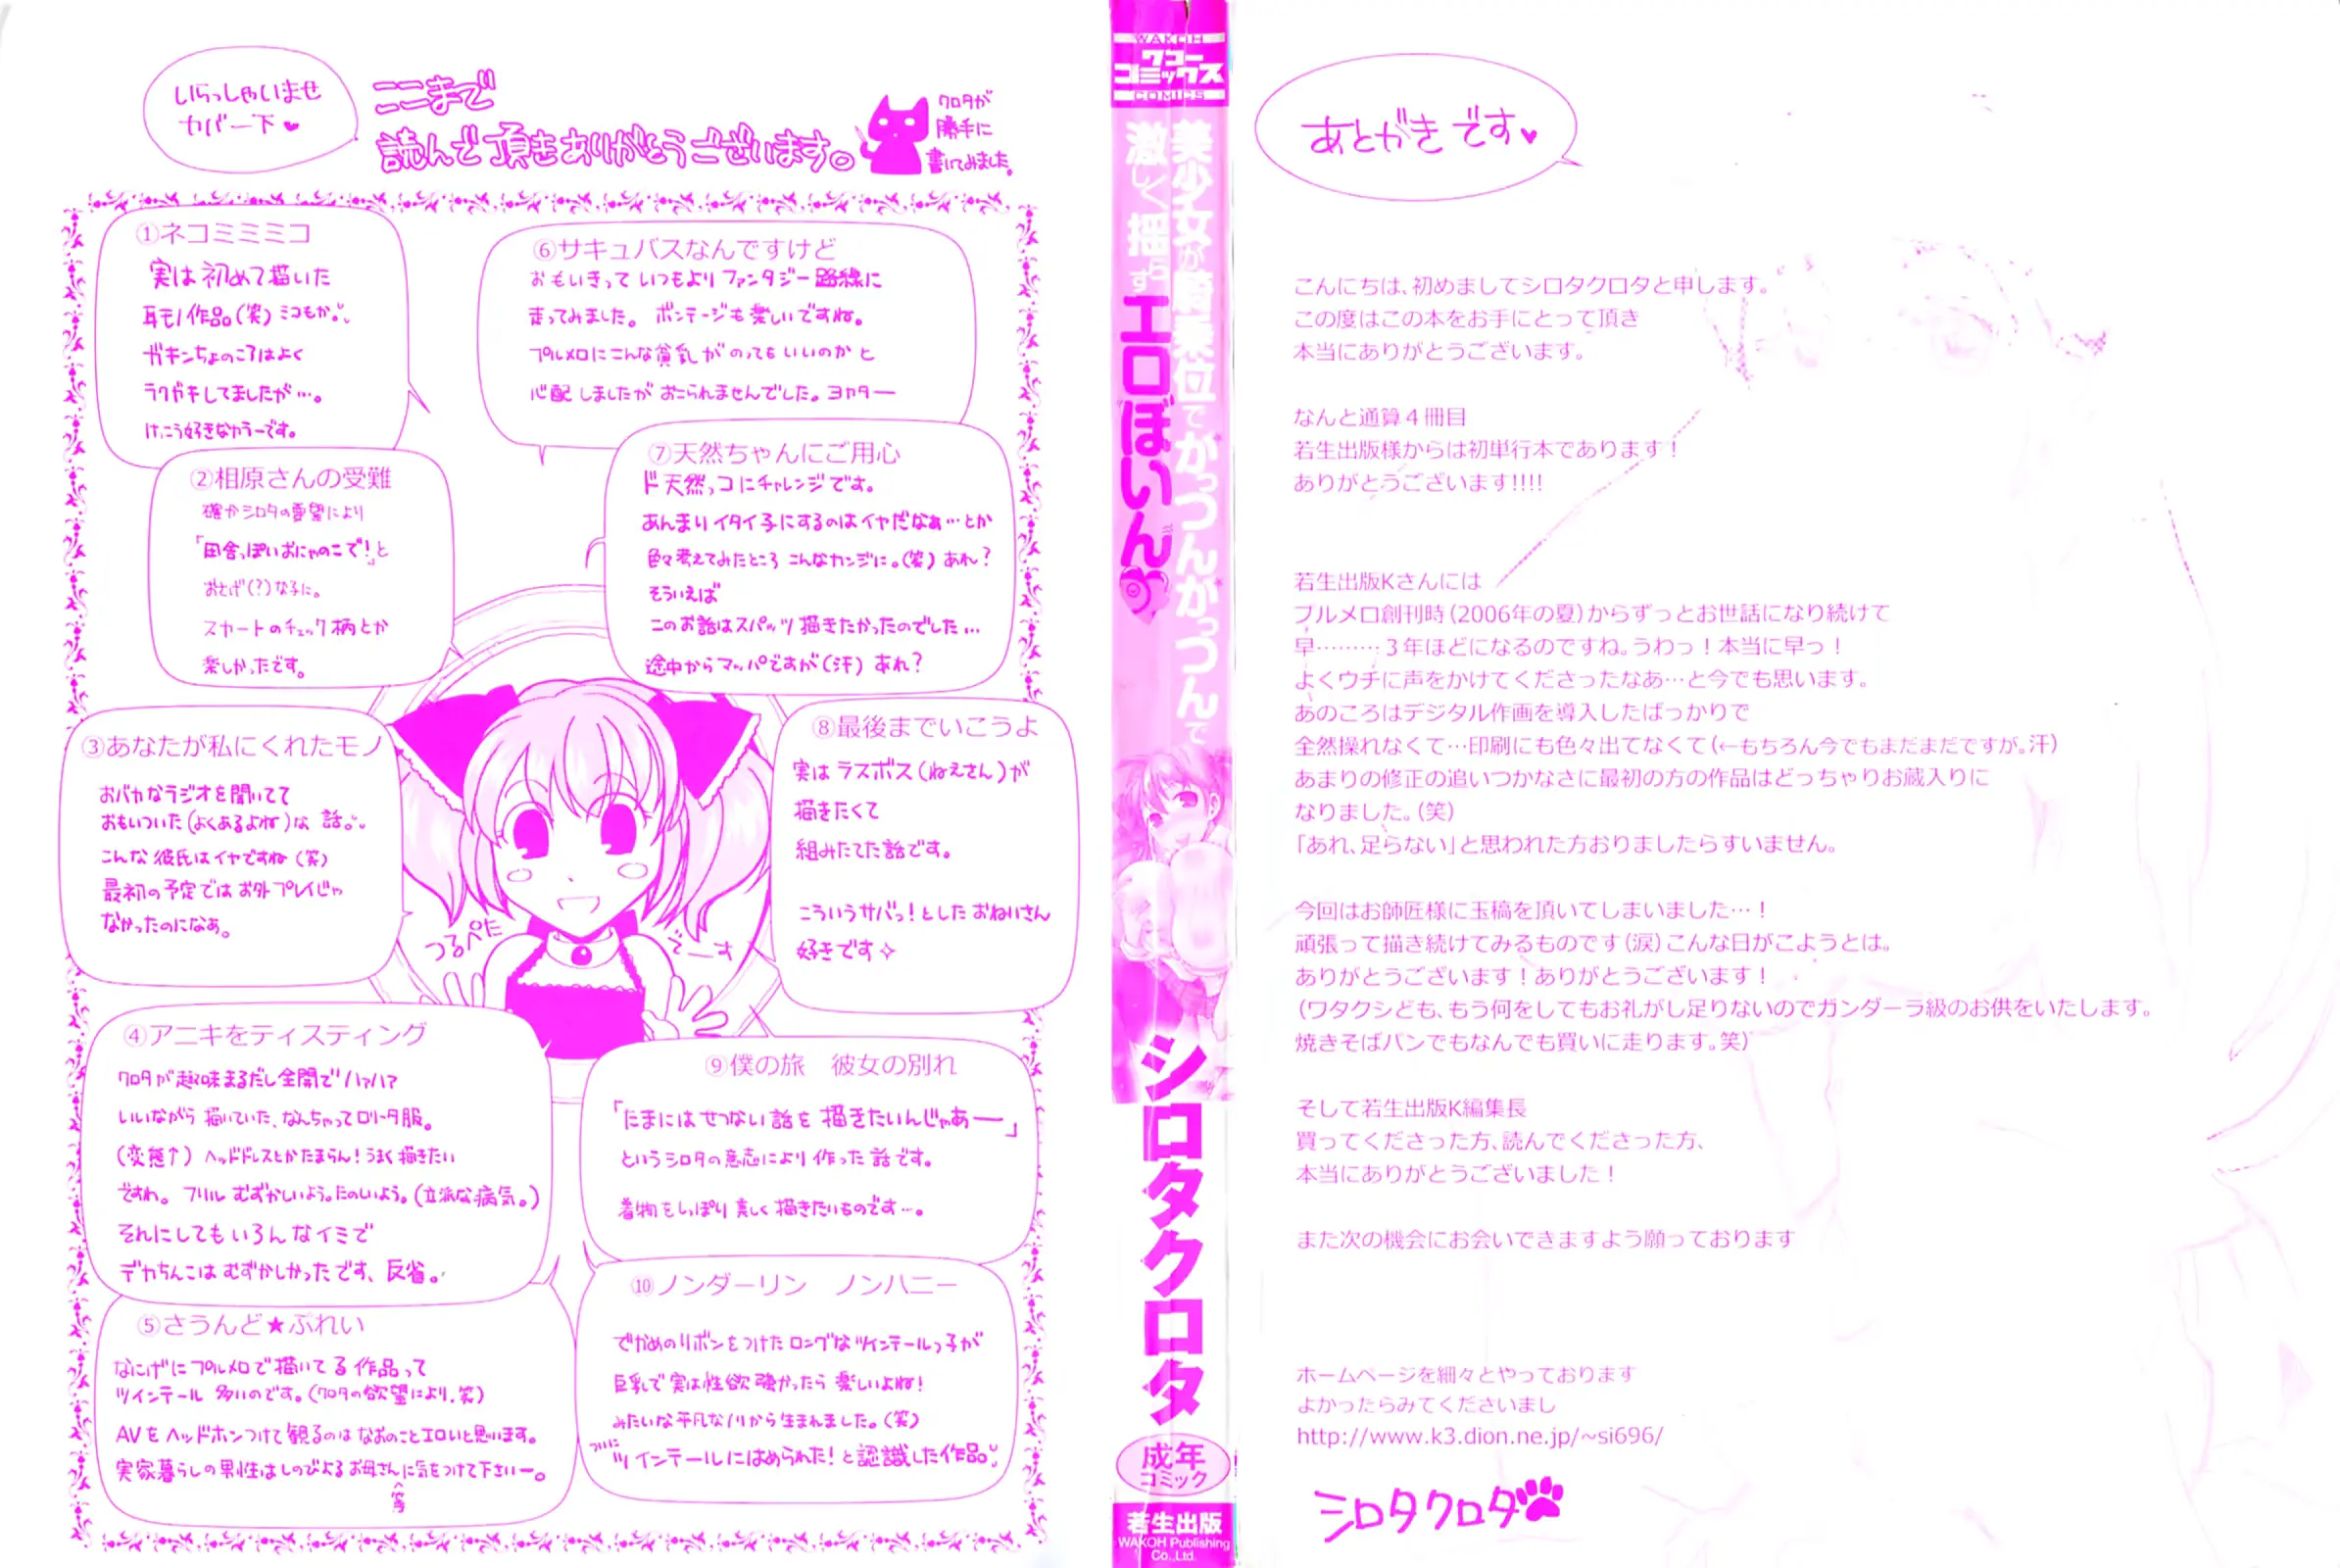 いらっしゃいませ
カバー下♥
ここまで
読んで頂きありがとうございます。
クロタが
勝手に
書いてみました。
①ネコミミミコ
実は初めて描いた
耳モノ作品。(笑)ミコもか。
ガキンちょのころはよく
ラクガキしてましたが…。
けっこう好きなカラーです。
②相原さんの受難
確かシロタの要望により
「田舎っぽいおにゃのこで!」と
おさげ(?)な子に。
スカートのチェック柄とか
楽しかったです。
③あなたが私にくれたモノ
おバカなラジオを聞いてて
おもいついた(よくあるよね)な 話。
こんな彼氏はイヤですね(笑)
最初の予定ではお外プレイじゃ
なかったのになぁ。
④アニキをティスティング
クロタが趣味まるだし全開でハァハァ
いいながら描いていた、なんちゃってロリータ服。
(変態↑)ヘッドドレスとかたまらん!うまく描きたい
ですね。フリルむずかしいよう。たのしいよう。(立派な病気。)
それにしてもいろんなイミで
デカちんこはむずかしかったです、反省。
⑤さうんど★ぷれい
なにげにプルメロで描いてる作品って
ツインテール多いのです。(クロタの欲望により.笑)
AVをヘッドホンつけて観るのはなおのことエロいと思います。
実家暮らしの男性はしのびよるお母さんに気をつけて下さいー。
(笑)
⑥サキュバスなんですけど
おもいきっていつもよりファンタジー路線に
走ってみました。ボンテージも楽しいですね。
プルメロにこんな貧乳がのってもいいのかと
心配しましたがおこられませんでした。ヨカター
⑦天然ちゃんにご用心
ド天然っコにチャレンジです。
あんまりイタイ子にするのはイヤだなぁ…とか
色々考えてみたところこんなカンジに。(笑)あれ?
そういえば
このお話はスパッツ描きたかったのでした…
途中からマッパですが(汗)あれ?
⑧最後までいこうよ
実はラスボス(ねえさん)が
描きたくて
組みたてた話です。
こういうサバっ!としたおねいさん
好きです✧
つるぺた
でーす
⑨僕の旅 彼女の別れ
「たまにはせつない話を描きたいんじゃあー」
というシロタの意志により作った話です。
着物をしっぽり美しく描きたいものです…。
⑩ノンダーリン ノンハニー
でかめのリボンをつけたロングなツインテールっ子が
巨乳で実は性欲強かったら楽しいよね!
みたいな平凡なノリから生まれました。(笑)
ついに
ツインテールにはめられた!と認識した作品。
WAKOH
ワコー
コミックス
COMICS
美少女が騎乗位でがっつんがっつんで
激しく揺らす
エロぼいん
シロタクロタ
成年
コミック
若生出版
WAKOH Publishing
Co.,Ltd.
あとがきです♥
こんにちは、初めましてシロタクロタと申します。
この度はこの本をお手にとって頂き
本当にありがとうございます。
なんと通算４冊目
若生出版様からは初単行本であります!
ありがとうございます!!!!
若生出版Kさんには
プルメロ創刊時(2006年の夏)からずっとお世話になり続けて
早………３年ほどになるのですね。うわっ!本当に早っ!
よくウチに声をかけてくださったなあ…と今でも思います。
あのころはデジタル作画を導入したばっかりで
全然操れなくて…印刷にも色々出てなくて(←もちろん今でもまだまだですが。汗)
あまりの修正の追いつかなさに最初の方の作品はどっちゃりお蔵入りに
なりました。(笑)
「あれ、足らない」と思われた方おりましたらすいません。
今回はお師匠様に玉稿を頂いてしまいました…!
頑張って描き続けてみるものです(涙)こんな日がこようとは。
ありがとうございます!ありがとうございます!
(ワタクシども、もう何をしてもお礼がし足りないのでガンダーラ級のお供をいたします。
焼きそばパンでもなんでも買いに走ります。笑)
そして若生出版K編集長
買ってくださった方、読んでくださった方、
本当にありがとうございました!
また次の機会にお会いできますよう願っております
ホームページを細々とやっております
よかったらみてくださいまし
http://www.k3.dion.ne.jp/~si696/
シロタクロタ